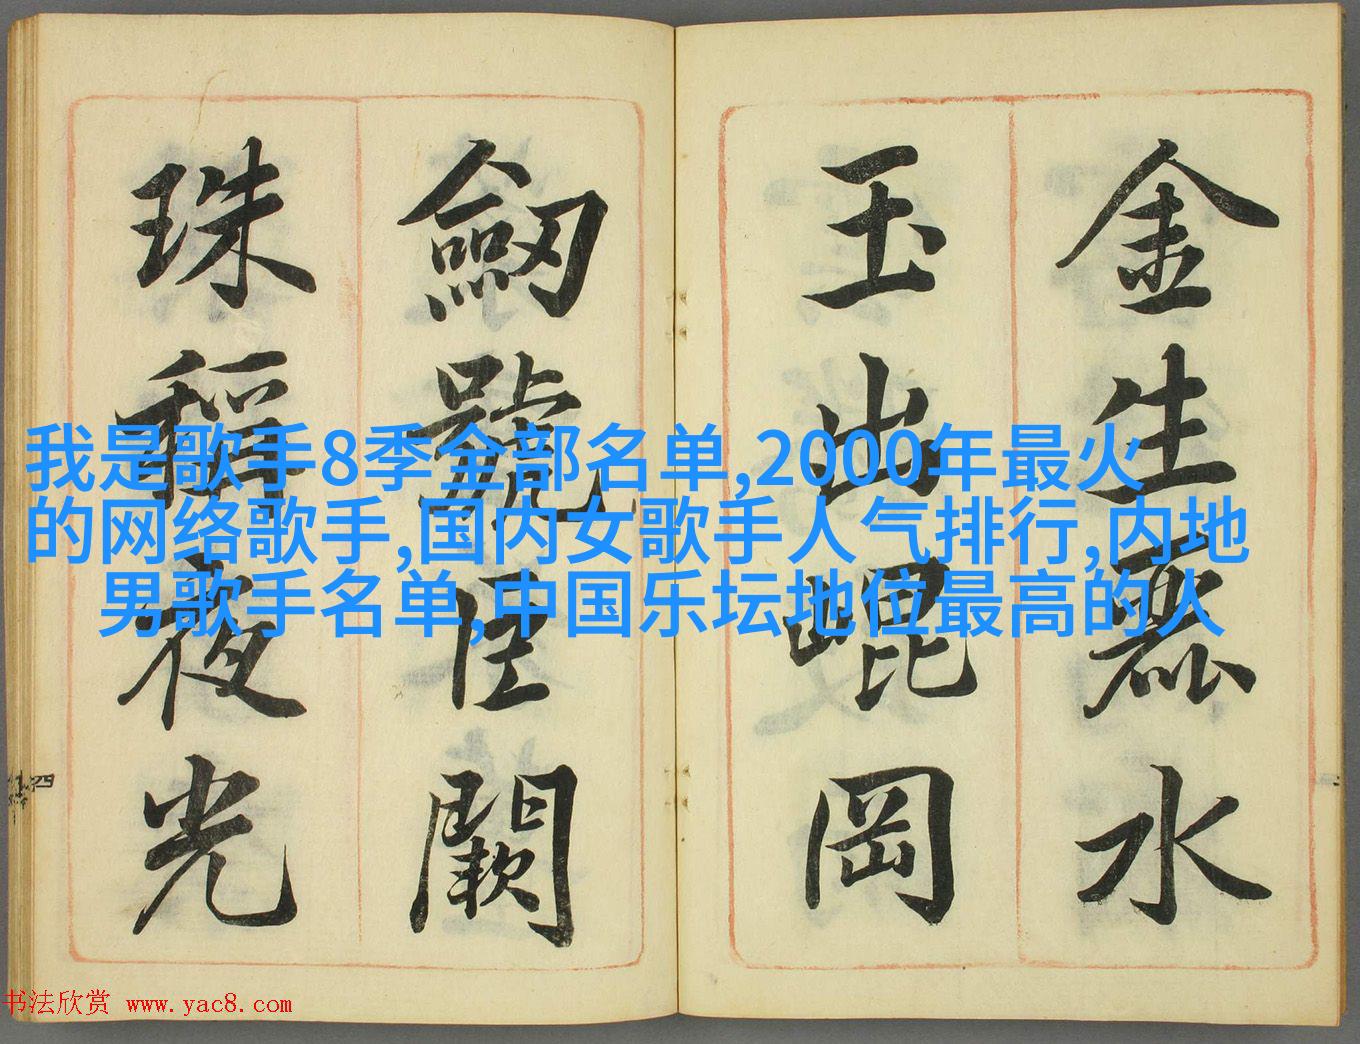 金生麗水
玉出崐岡
劒號巨闕
珠稱夜光
我是歌手8季全部名单,2000年最火
的网络歌手,国内女歌手人气排行,内地
男歌手名单,中国乐坛地位最高的人
四
书法欣赏 www.yac8.com